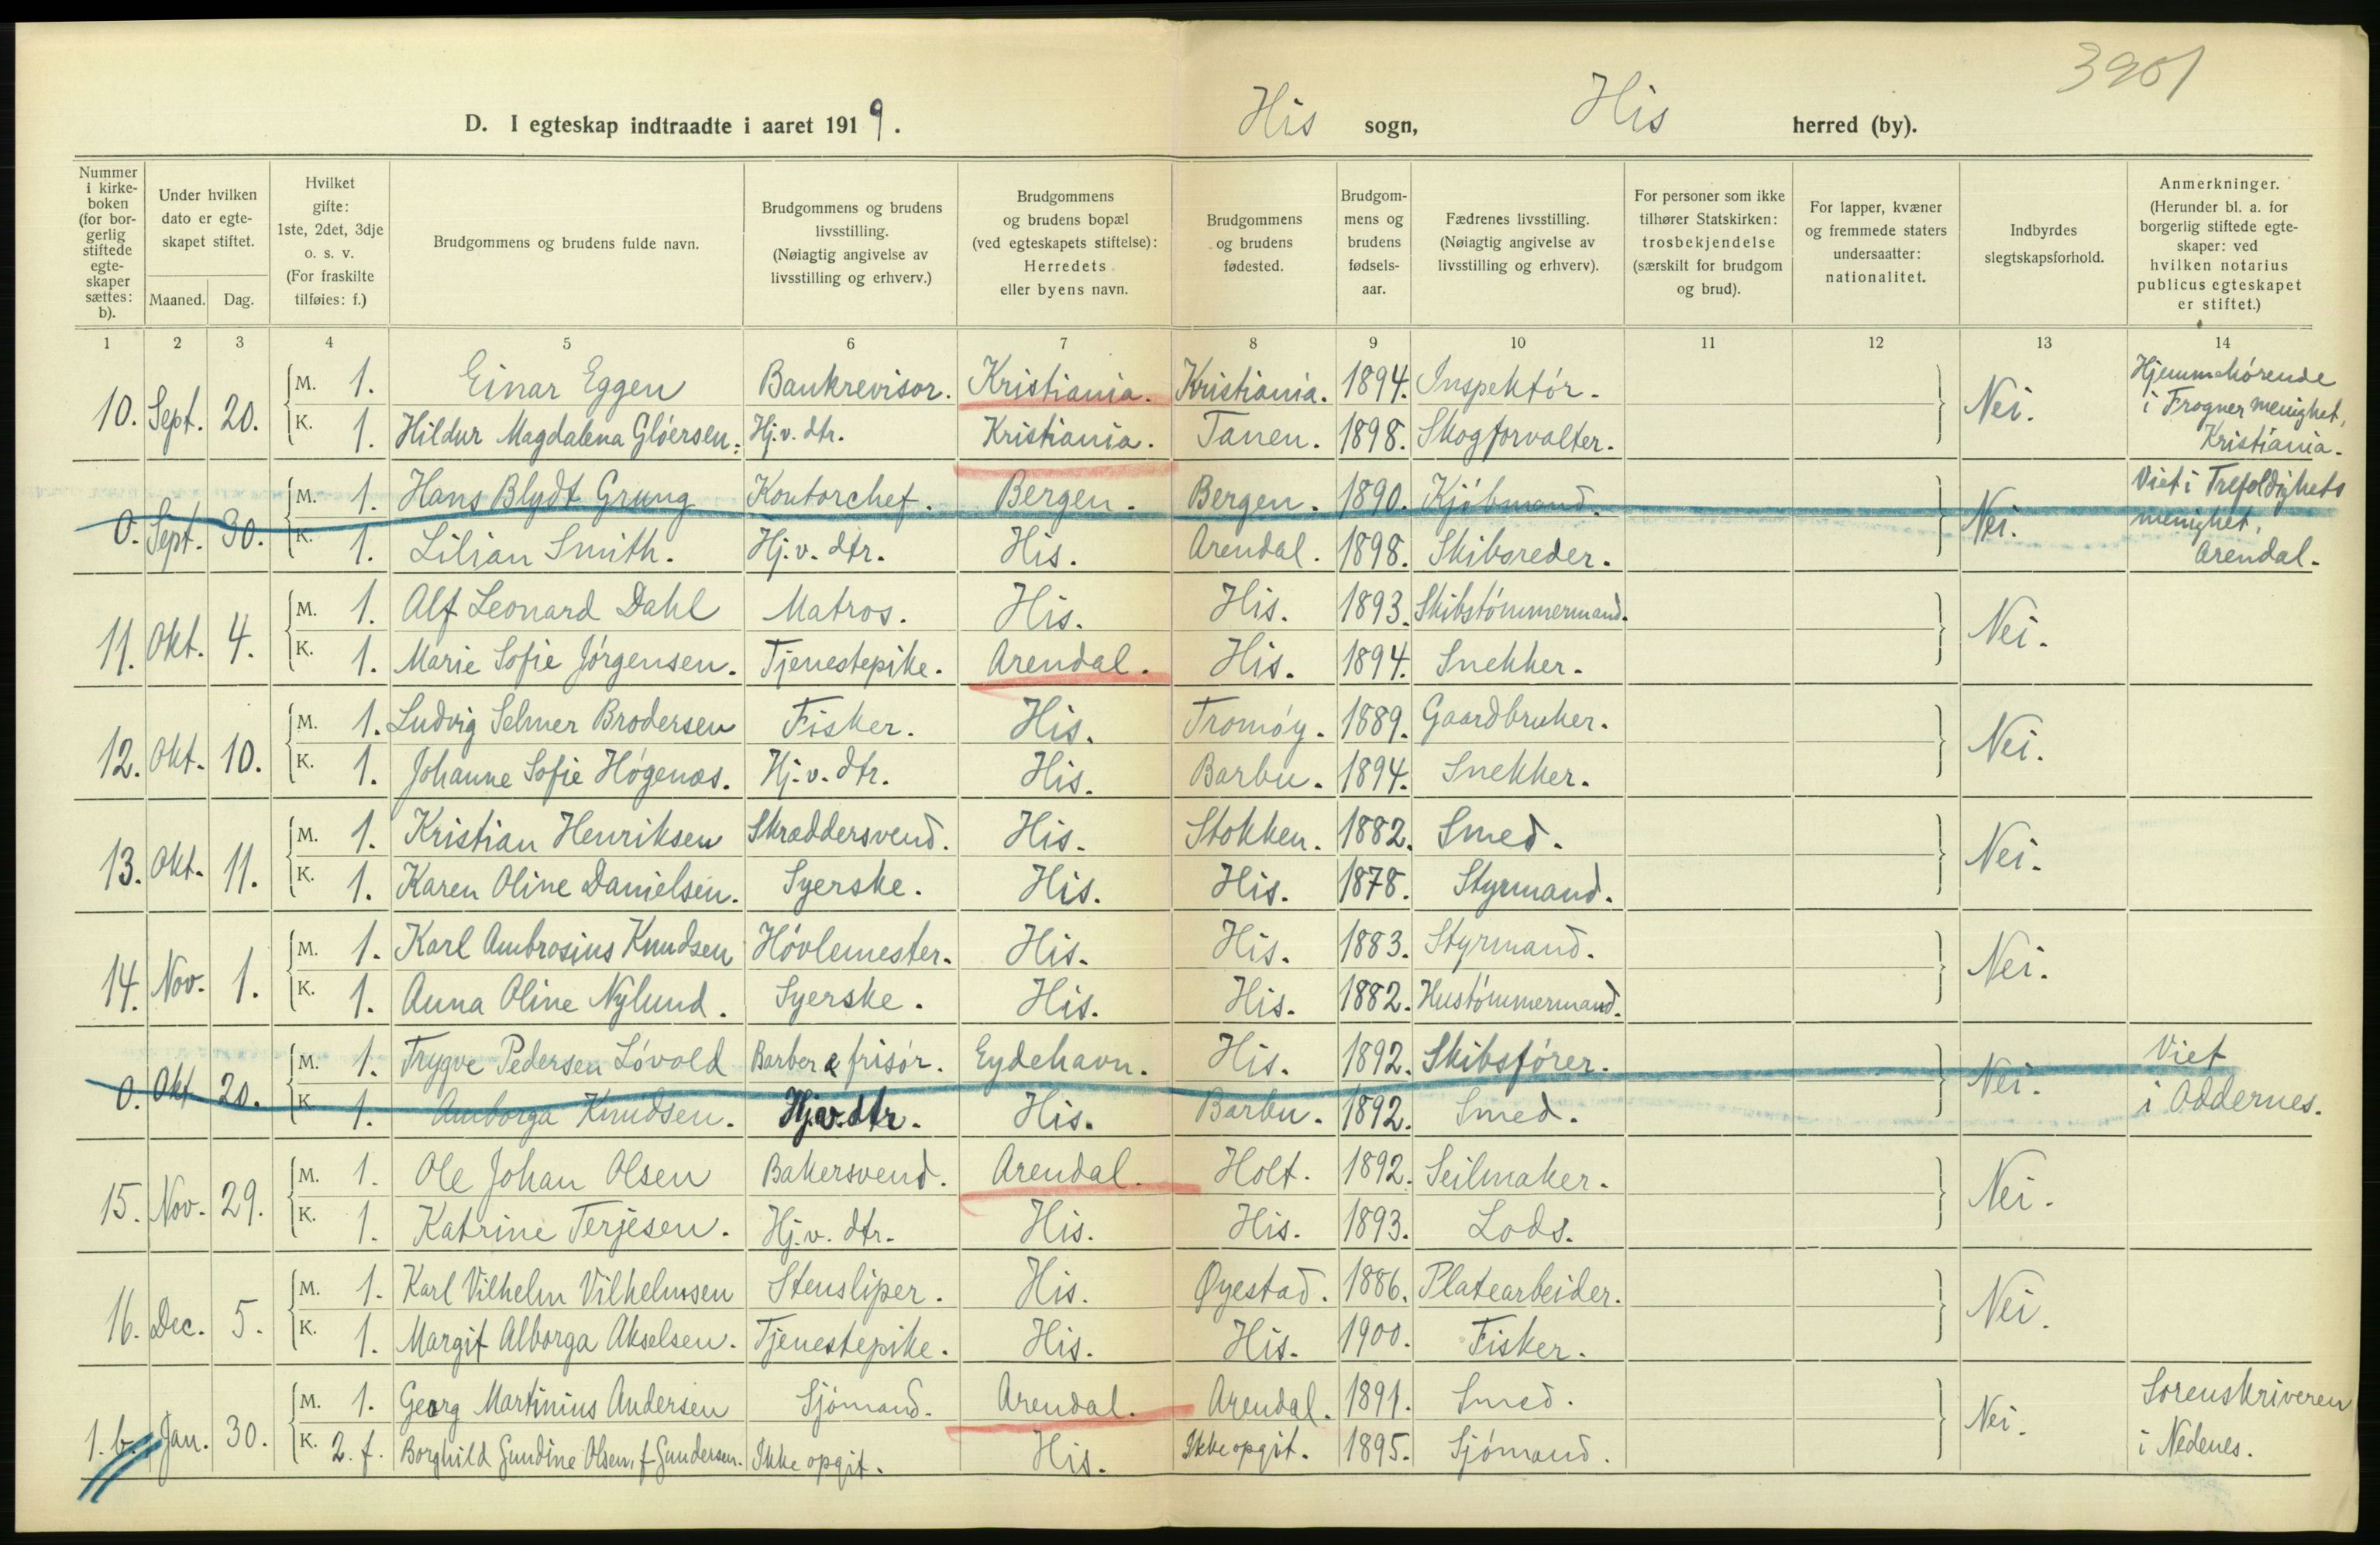 3901
D. I egteskap indtraadte i aaret 1919. His sogn, His herred (by).
Nummer i kirkeboken (for borgerlig stiftede egteskaper sættes: b).
Under hvilken dato er egteskapet stiftet.
Maaned. Dag.
Hvilket gifte: 1ste, 2det, 3dje o. s. v. (For fraskilte tilføies: f.)
Brudgommens og brudens fulde navn.
Brudgommens og brudens livsstilling. (Nøiagtig angivelse av livsstilling og erhverv.)
Brudgommens og brudens bopæl (ved egteskapets stiftelse): Herredets eller byens navn.
Brudgommens og brudens fødested.
Brudgommens og brudens fødselsaar.
Fædrenes livsstilling. (Nøiagtig angivelse av livsstilling og erhverv).
For personer som ikke tilhører Statskirken: trosbekjendelse (særskilt for brudgom og brud).
For lapper, kvæner og fremmede staters undersaatter: nationalitet.
Indbyrdes slegtskapsforhold.
Anmerkninger. (Herunder bl. a. for borgerlig stiftede egteskaper: ved hvilken notarius publicus egteskapet er stiftet.)
1 2 3 4 5 6 7 8 9 10 11 12 13 14
10. Sept. 20. M. 1. Einar Eggen Bankrevisor. Kristiania. Kristiania. 1894. Inspektór. Nei. Hjemmehórende i Frogner menighet, Kristiania.
K. 1. Hildur Magdalena Glóersen. Hj. v. dtr. Kristiania. Tanen. 1898. Skogforvalter.
0. Sept. 30. M. 1. Hans Blydt Grung Kontorchef. Bergen. Bergen. 1890. Kjóbmand. Nei. Viet i Trefoldighets menighet, Arendal.
K. 1. Lilian Smith. Hj. v. dtr. His. Arendal. 1898. Skibsreder.
11. Okt. 4. M. 1. Alf Leonard Dahl Matros. His. His. 1893. Skibstómmermand. Nei.
K. 1. Marie Sofie Jórgensen. Tjenestepike. Arendal. His. 1894. Snekker.
12. Okt. 10. M. 1. Ludvig Selmer Brodersen Fisker. His. Tromóy. 1889. Gaardbruker. Nei.
K. 1. Johanne Sofie Högenæs. Hj. v. dtr. His. Barbu. 1894. Snekker.
13. Okt. 11. M. 1. Kristian Henriksen Skræddersvend. His. Stokken. 1882. Smed. Nei.
K. 1. Karen Oline Danielsen. Syerske. His. His. 1878. Styrmand.
14. Nov. 1. M. 1. Karl Ambrosius Knudsen Hóvlemester. His. His. 1883. Styrmand. Nei.
K. 1. Anna Oline Nylund. Syerske. His. His. 1882. Hustómmermand.
0. Okt 20. M. 1. Trygve Pedersen Lóvold Barber & frisór. Eydehavn. His. 1892. Skibsfórer. Nei. Viet i Oddernes.
K. 1. Amborga Knudsen. Hj. v. dtr. His. Barbu. 1892. Smed.
15. Nov. 29. M. 1. Ole Johan Olsen Bakersvend. Arendal. Holt. 1892. Seilmaker. Nei.
K. 1. Katrine Terjesen. Hj. v. dtr. His. His. 1893. Lods.
16. Dec. 5. M. 1. Karl Vilhelm Vilhelmsen Stensliper. His. Øyestad. 1886. Platearbeider. Nei.
K. 1. Margit Alborga Akselsen. Tjenestepike. His. His. 1900. Fisker.
1. b. Jan. 30. M. 1. Georg Martinius Andersen Sjómand. Arendal. Arendal. 1891. Smed. Nei. Sorenskriveren i Nedenes.
K. 2. f. Borghild Gundine Olsen, f. Gundersen. Ikke opgit. His. Ikke opgit. 1895. Sjómand.